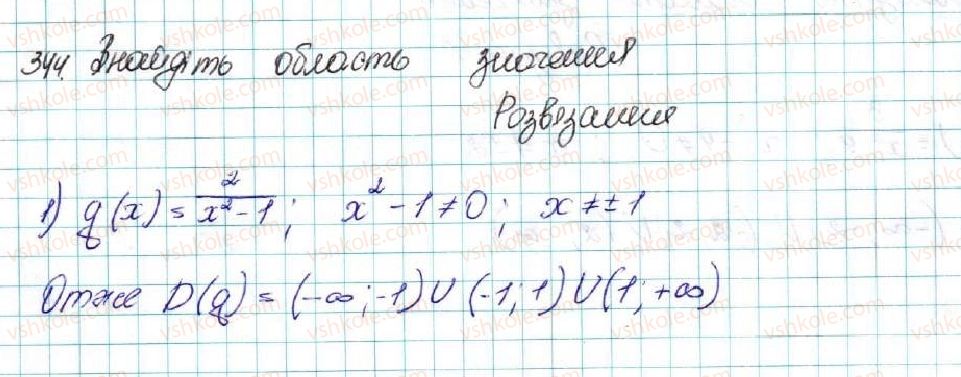 344. Знайдіть область значення
Розвязання
1) g(x) = 2/(x² - 1); x² - 1 ≠ 0; x ≠ ± 1
Отже D(g) = (-∞; -1) ∪ (-1; 1) ∪ (1; +∞)